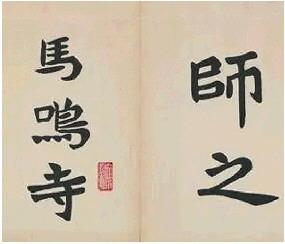 師之
馬鳴寺